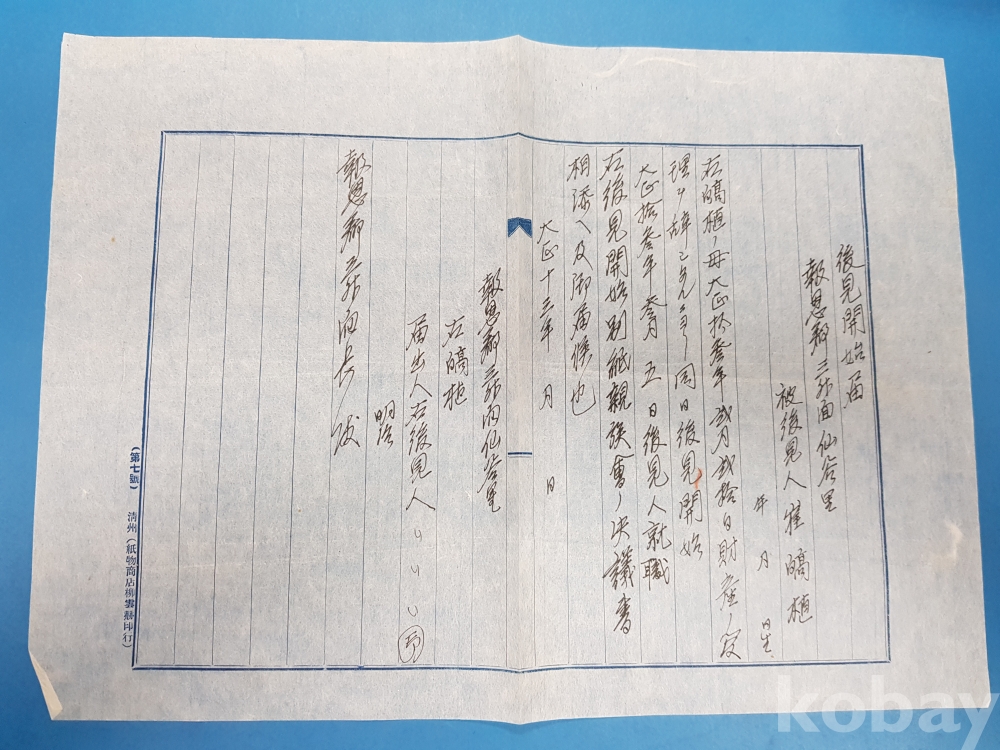 後見開始届
報恩郡三升面仙谷里
被後見人崔皜植
年 月 日生
右皜植ノ母大正拾叁年弐月弐拾日財産ノ管
理ヲ辞シ 同日後見開始
大正拾叁年叁月五日後見人就職
右後見開始別紙親族會ノ决議書
相添ヘ及御届候也
大正十三年 月 日
報恩郡三升面仙谷里
右皜植
届出人右後見人
明治
報恩郡三升面長 殿
(第七號) 清州(紙物商店柳雲赫印行)
kobay